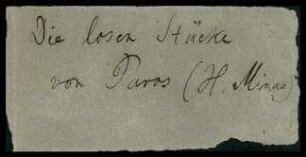 Die losen Stücke
von Paros (H. Minas)